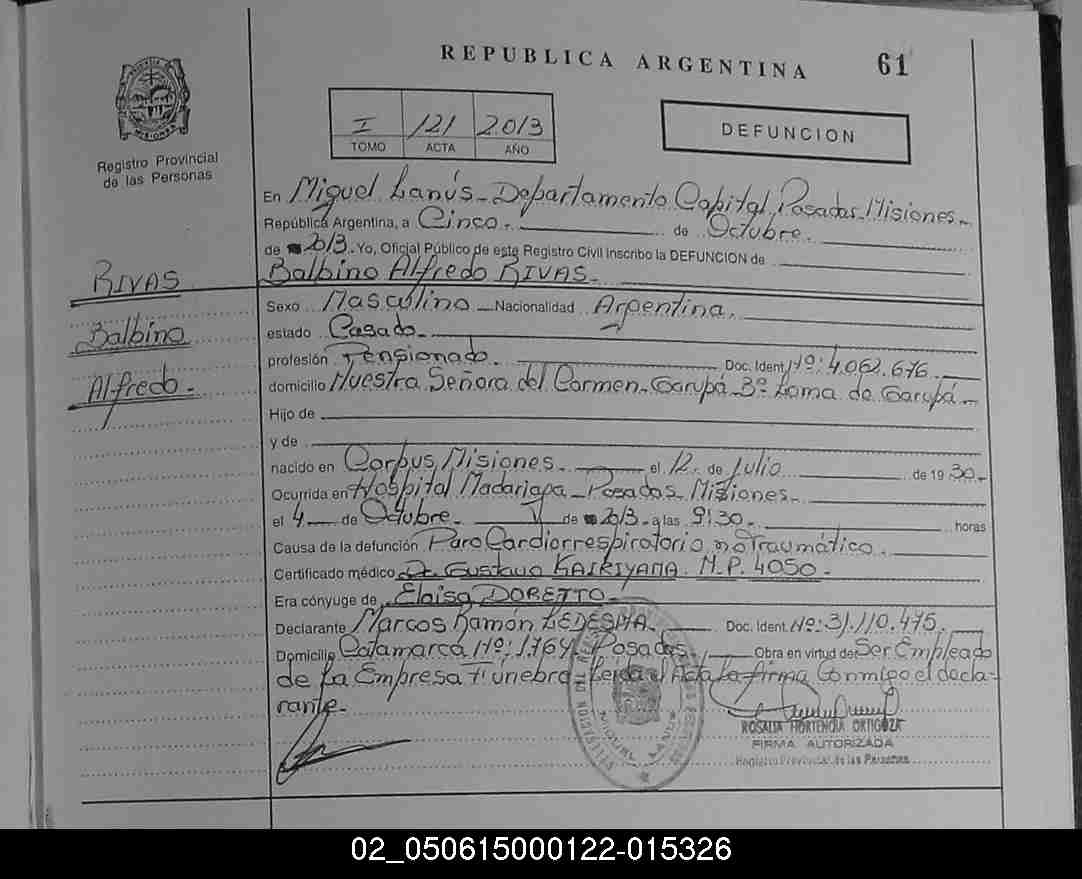 REPUBLICA ARGENTINA 61
MISIONES
Registro Provincial
de las Personas
I 121 2013
TOMO ACTA AÑO
DEFUNCION
En Miguel Lanús - Departamento Capital Posadas Misiones -
República Argentina, a Cinco. de Octubre.
de 2013. Yo, Oficial Público de este Registro Civil inscribo la DEFUNCION de
RIVAS
Balbino Alfredo RIVAS.
Sexo Masculino Nacionalidad Argentina.
Balbino
estado Casado -
profesión Pensionado. Doc. Ident. Nº: 4.062.676.
Alfredo -
domicilio Nuestra Señora del Carmen - Garupá - 3º Loma de Garupá -
Hijo de
y de
nacido en Corpus, Misiones. el 12 - de Julio de 1930 -
Ocurrida en Hospital Madariaga - Posadas - Misiones -
el 4 de Octubre. de 2013 - a las 9:30 - horas
Causa de la defunción Paro Cardiorrespiratorio no Traumático.
Certificado médico Dr. Gustavo M.P. 4050 -
Era cónyuge de Eloisa DORETTO -
Declarante Marcos Ramón LEDESMA. Doc. Ident. Nº: 31.110.475.
Domicilio Catamarca Nº: 1764 Posadas Obra en virtud de Ser Empleado
de La Empresa Fúnebre Leída el Acta La firma Conmigo el decla-
rante -
ROSALIA HORTENCIA ORTIGOZA
FIRMA AUTORIZADA
Registro Provincial de las Personas
MIGUEL LANUS
02_050615000122-015326